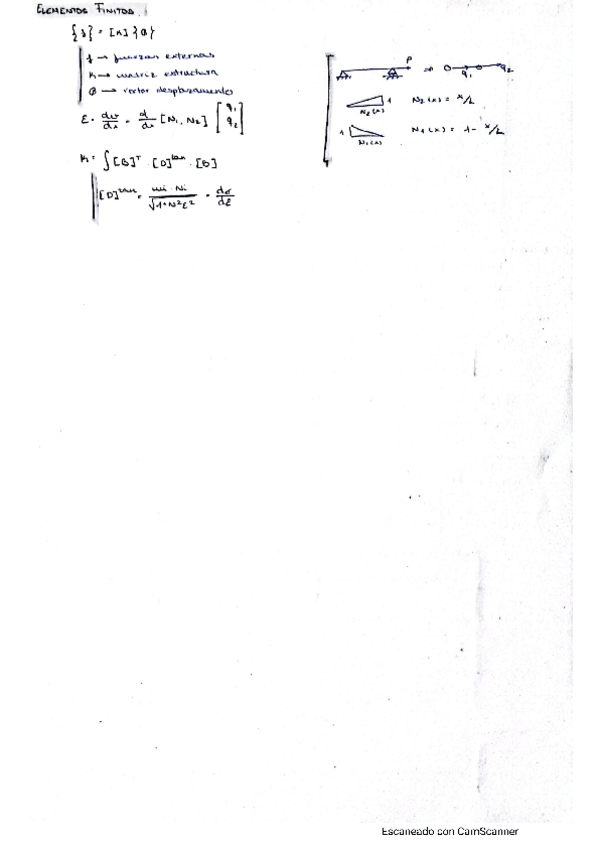 ELEMENTOS FINITOS
{f} = [K] {Q}
f → fuerzas externas
K → matriz estructura
Q → vector desplazamiento
ε = du/dx = d/dx [N1, N2] [q1 q2]
K = ∫ [B]ᵀ · [D]ᵗᵃⁿ · [B]
[D]ᵗᵃⁿ = = dσ/dε
P
⇒
q1
q2
1
N2(x)
N2(x) = x/L
1
N1(x)
N1(x) = 1 - x/L
Escaneado con CamScanner